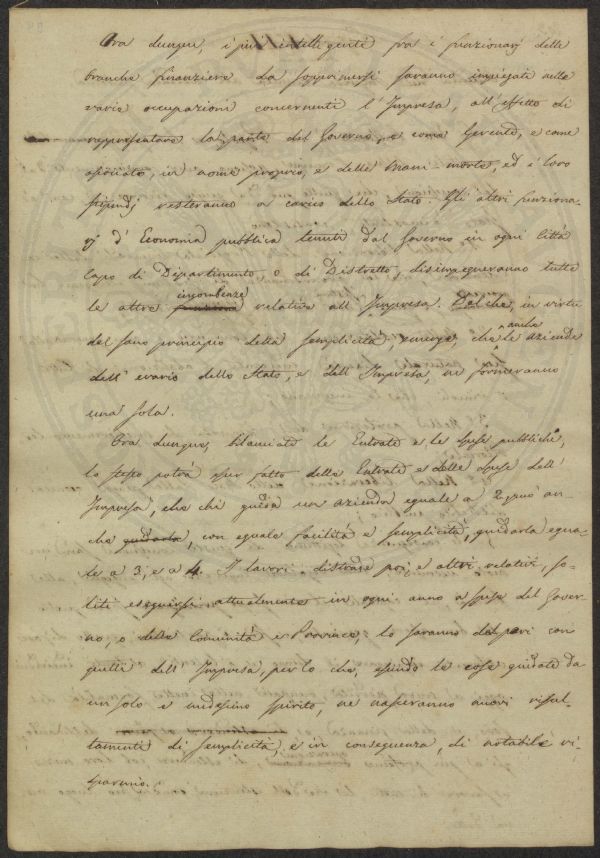 Ora dunque, i più intelligenti fra i funzionarj delle
branche finanziere da sopprimersi saranno impiegati nelle
varie occupazioni concernenti l'Impresa, all'effetto di
rappresentare la parte del Governo, e come Gerente, e come
in nome proprio, e delle Mani-morte, ed i loro
stipendj resteranno a carico dello Stato. Gli altri funziona-
rj d'Economia pubblica tenuti dal Governo in ogni Città
Capo di Dipartimento, o di Distretto, disimpegneranno tutte
le altre incombenze relative all'Impresa. Dal che, in virtù
del sano principio della semplicità, emerge, che anche le aziende
dell'erario dello Stato, e dell'Impresa, ne formeranno
una sola.
Ora dunque, bilanciate le Entrate e le spese pubbliche,
lo stesso potrà per fatto delle Entrate e delle spese dell'
Impresa, che chi guida un azienda eguale a 2, può an-
che guidarla, con eguale facilità e semplicità, guidarla egua-
le a 3, e a 4. I lavori di strade poi, e altri relativi, so-
liti eseguirsi attualmente in ogni anno a spese del Gover-
no, o delle Comunità e Province, lo saranno del pari con
quelli dell'Impresa, per lo che, essendo le cose guidate da
un solo e medesimo spirito, ne nasceranno nuovi risul-
tamenti di semplicità, e in conseguenza, di notabile ri-
sparmio.